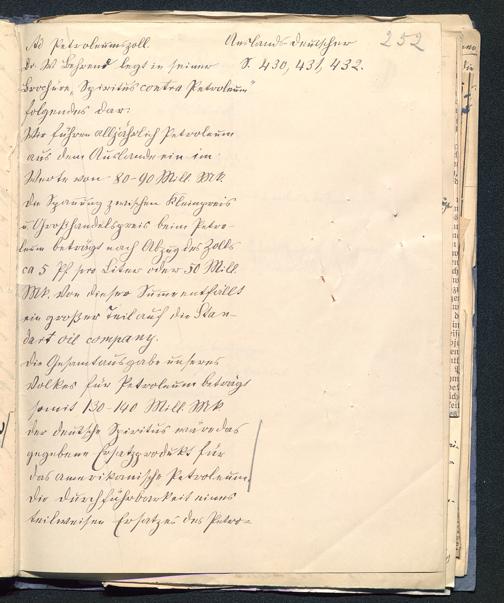 Ad Petroleumszoll. Auslands-Deutscher 252
Dr. W. Behrend legt in seiner S. 430, 431, 432.
Brochüre "Spiritus contra Petroleum"
folgendes dar:
Wir führen alljährlich Petroleum
aus dem Auslande ein im
Werte von 80-90 Mill Mk
Die Spannung zwischen Kleinpreis
u. Großhandelspreis beim Petro-
leum beträgt nach Abzug des Zolls
ca 5 Pf pro Liter oder 50 Mill
Mk. Von dieser Summe entfällt
ein großer Teil auf die Stan-
dart oil company.
Die Gesamtausgabe unseres
Volkes für Petroleum beträgt
somit 130-140 Mill Mk
Der deutsche Spiritus wäre das
gegebene Ersatzprodukt für
das amerikanische Petroleum.
Die Durchführbarkeit eines
teilweisen Ersatzes des Petro-